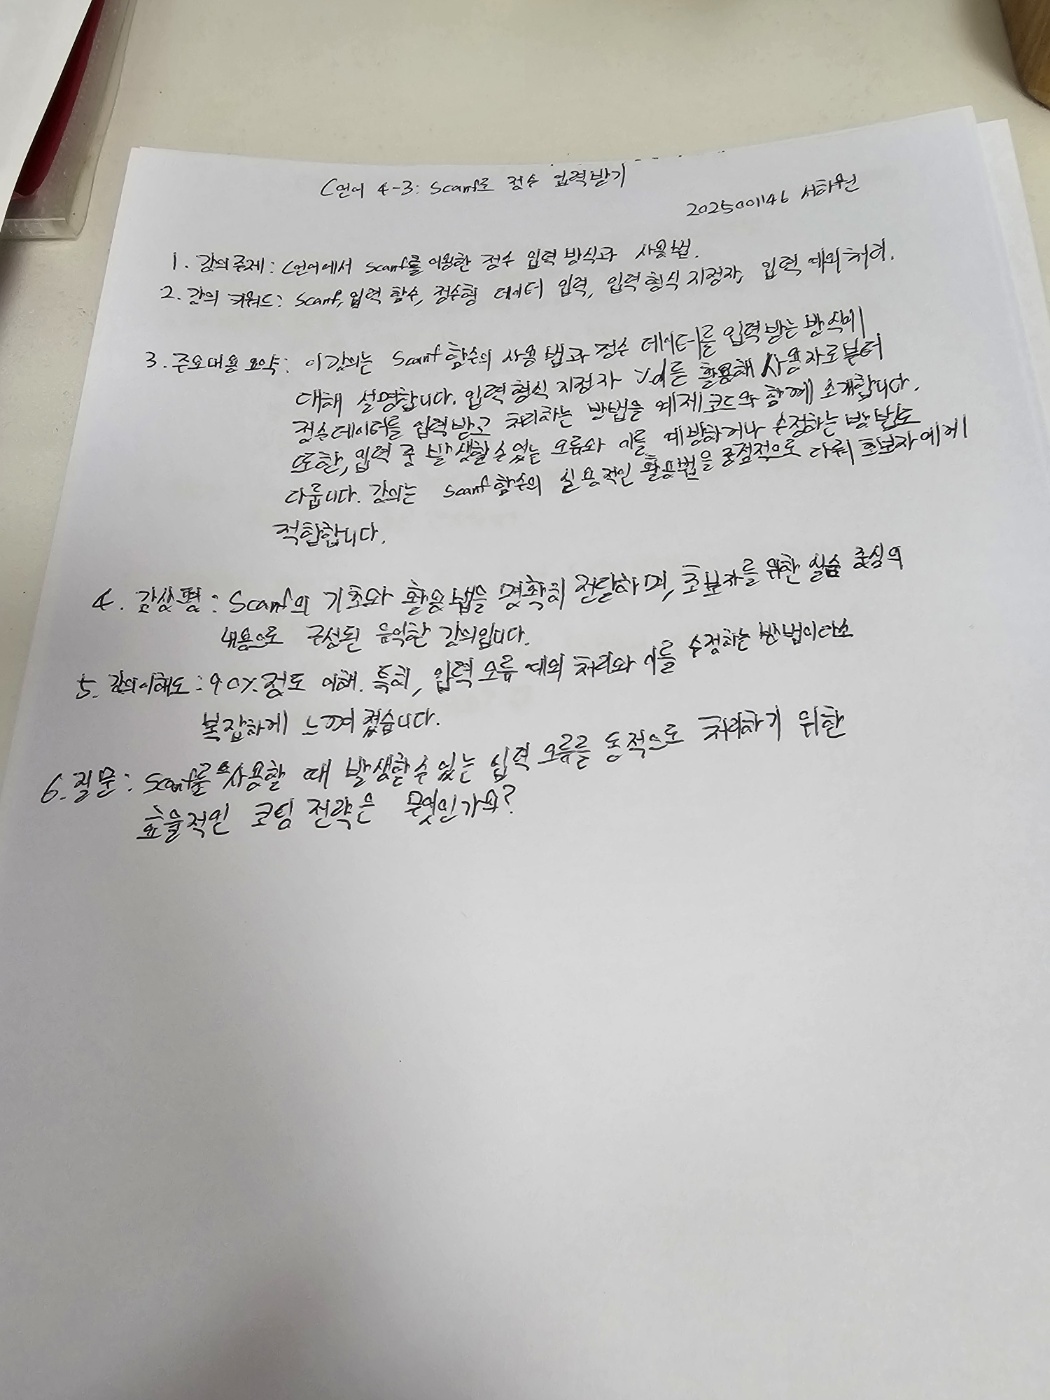 C언어 4-3: Scanf로 정수 입력받기
2025001146 서하원
1. 강의주제: C언어에서 scanf를 이용한 정수 입력 방식과 사용법.
2. 강의 키워드: Scanf, 입력 함수, 정수형 데이터 입력, 입력 형식 지정자, 입력 예외 처리.
3. 주요내용 요약: 이 강의는 Scanf 함수의 사용법과 정수 데이터를 입력받는 방식에
대해 설명합니다. 입력 형식 지정자 %d를 활용해 사용자로부터
정수데이터를 입력받고 처리하는 방법을 예제코드와 함께 소개합니다.
또한, 입력 중 발생할 수 있는 오류와 이를 예방하거나 수정하는 방법도
다룹니다. 강의는 scanf 함수의 실용적인 활용법을 중점적으로 다뤄 초보자에게
적합합니다.
4. 감상평: Scanf의 기초와 활용법을 명확히 전달하며, 초보자를 위한 실습 중심의
내용으로 구성된 유익한 강의입니다.
5. 강의이해도: 90% 정도 이해. 특히, 입력 오류 예외 처리와 이를 수정하는 방법이 다소
복잡하게 느껴졌습니다.
6. 질문: Scanf를 사용할 때 발생할 수 있는 입력 오류를 동적으로 처리하기 위한
효율적인 코딩 전략은 무엇인가요?